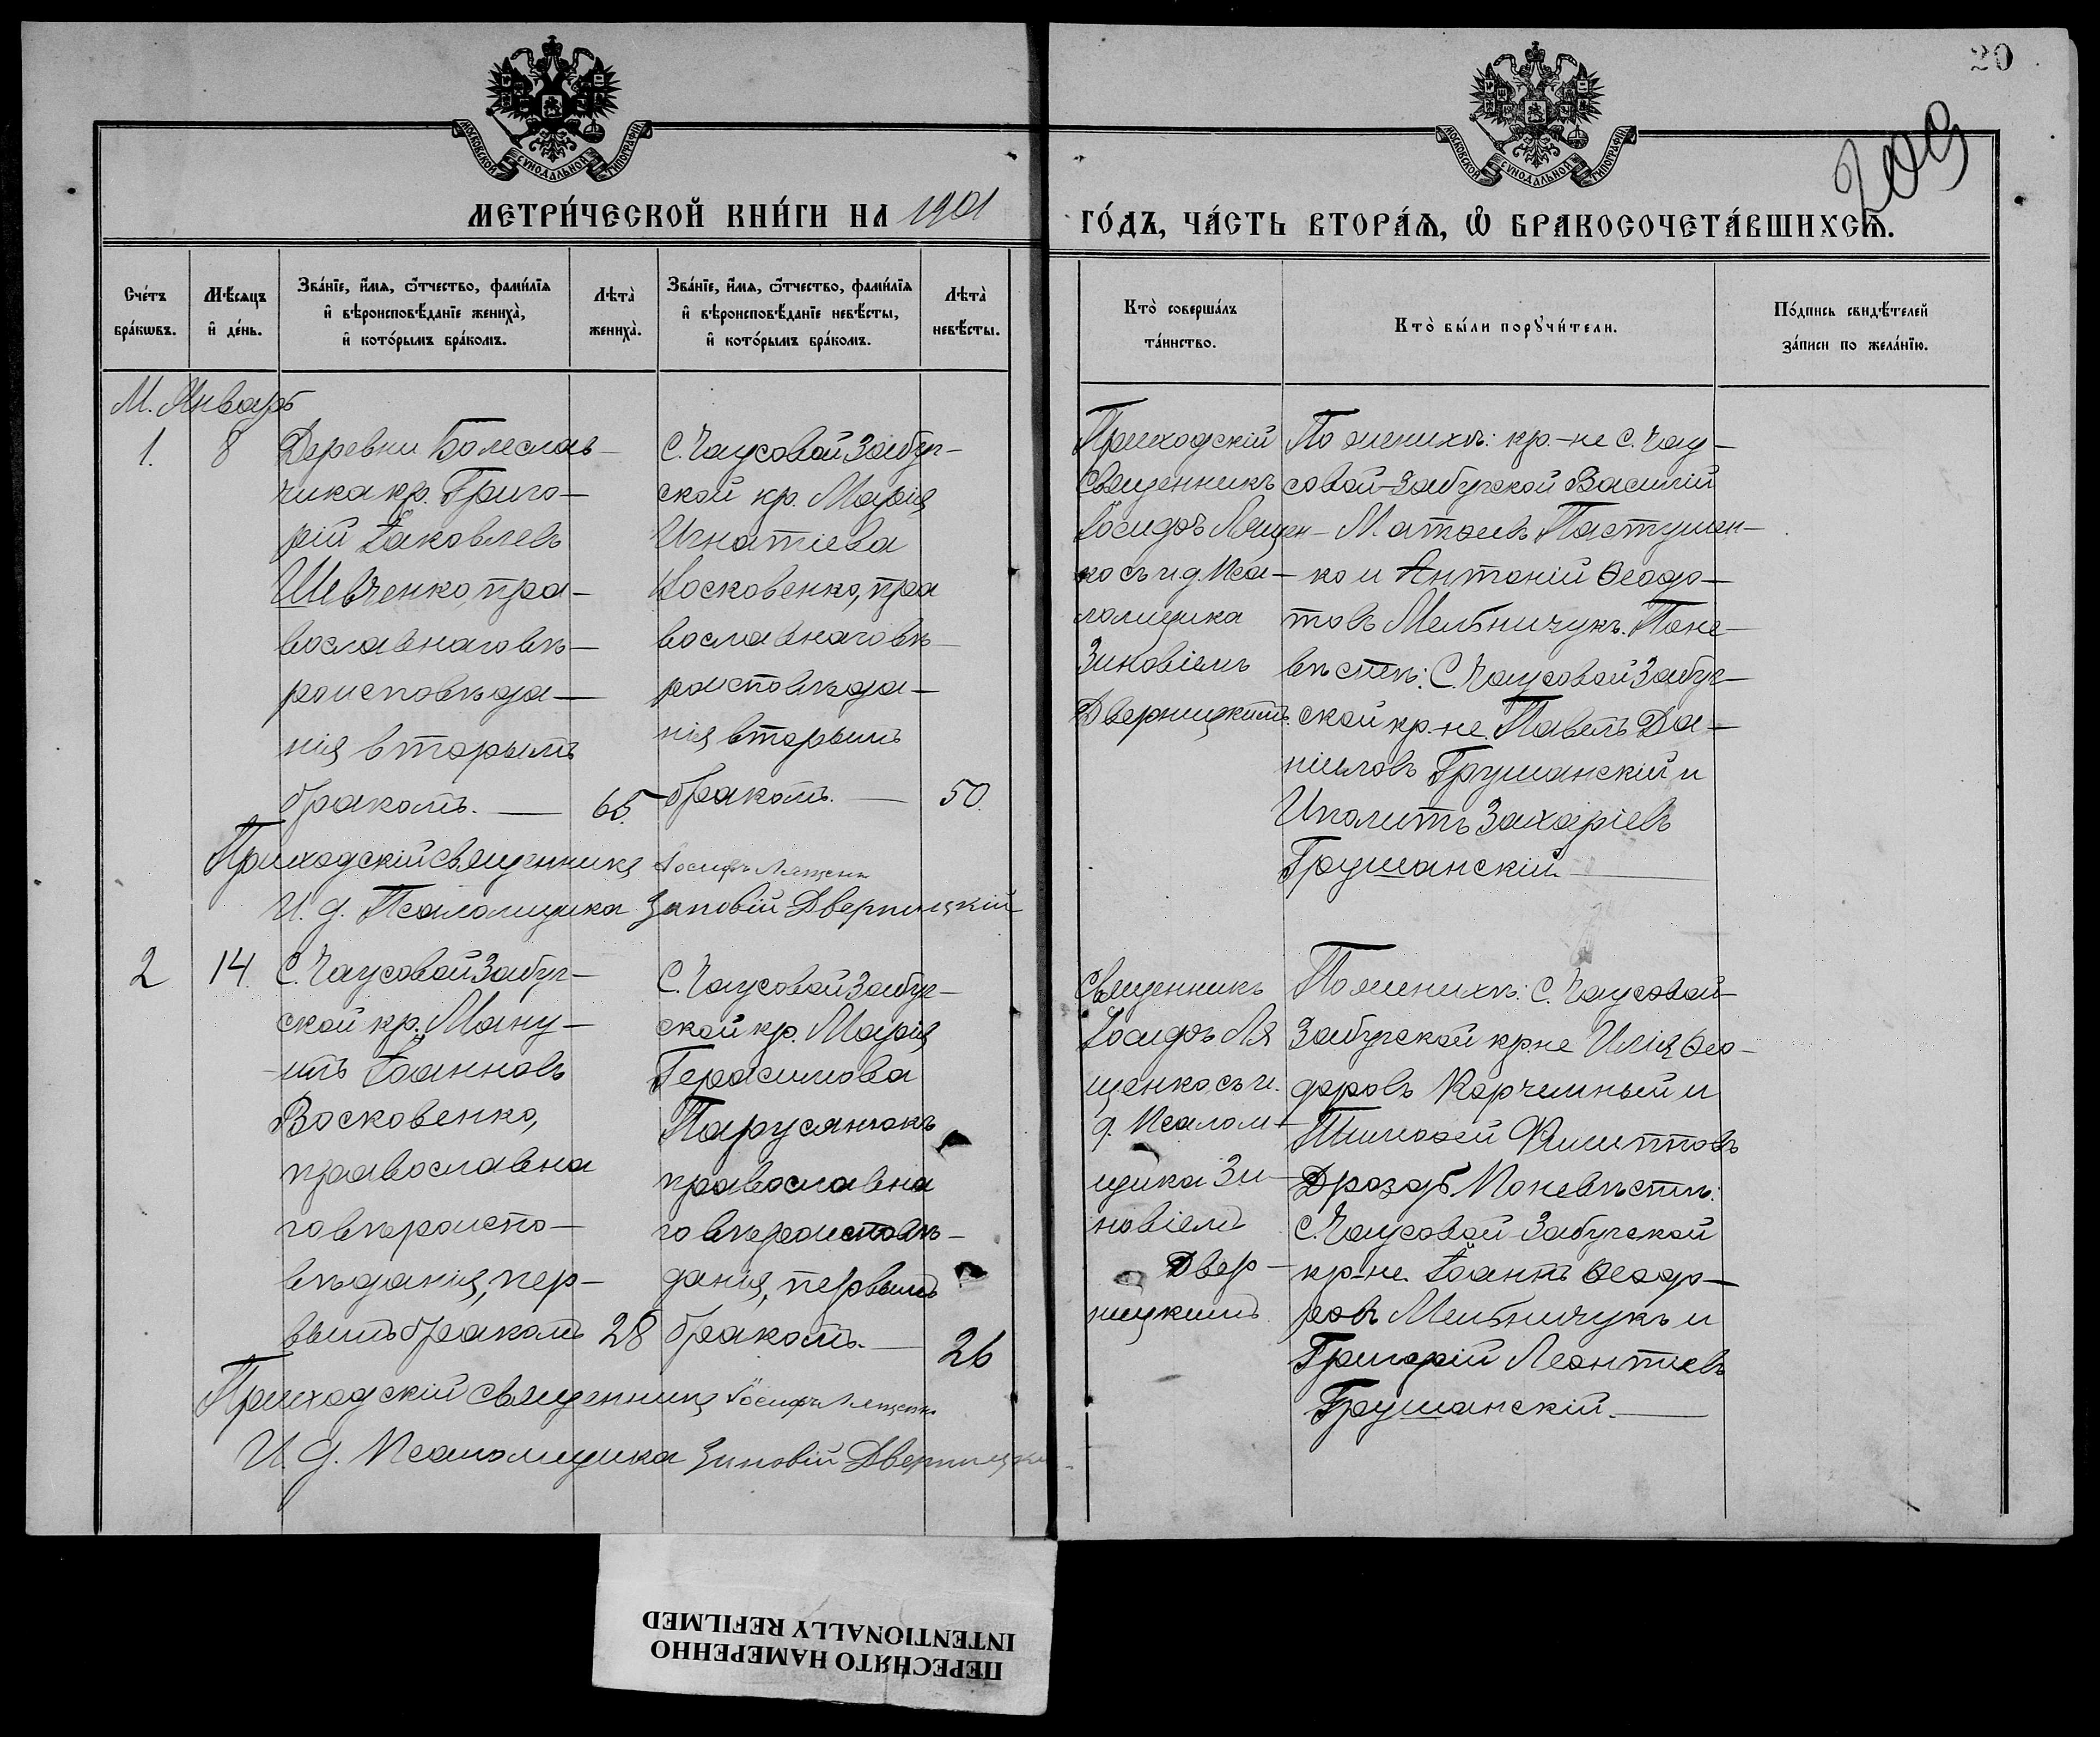 20
203
МОСКОВСКОЙ СѴНОДАЛЬНОЙ ТИПОГРАФІИ
МОСКОВСКОЙ СѴНОДАЛЬНОЙ ТИПОГРАФІИ
МЕТРИ́ЧЕСКОЙ КНИ́ГИ НА 1901
ГО́ДЪ, ЧА́СТЬ ВТОРА́Ѧ, Ѽ БРАКОСОЧЕТА́ВШИХСѦ.
Сче́тъ бра́кѡвъ.
Мѣ́сяцъ и҆ де́нь.
Зва́нїе, и҆́мя, ѻ҆́тчество, фами́лїя и҆ вѣроисповѣ́данїе жениха̀, и҆ кото́рымъ бра́комъ.
Лѣта̀ жениха̀.
Зва́нїе, и҆́мя, ѻ҆́тчество, фами́лїя и҆ вѣроисповѣ́данїе невѣ́сты, и҆ кото́рымъ бра́комъ.
Лѣта̀ невѣ́сты.
Кто̀ соверша́лъ та́инство.
Кто̀ бы́ли порꙋчи́тели.
По́дпись свидѣ́телей за́писи по жела́нїю.
М. Январь
1. 8
Деревни Болеслав-
чика кр. Григо-
рій Іаковлевъ
Шевченко, пра-
вославнаго вѣ-
роисповѣда-
нія вторымъ
бракомъ. — 65.
С. Чаусовой Забуг-
ской кр. Марія
Игнатіева
Восковенко, пра
вославнаго вѣ-
роисповѣда-
нія вторымъ
бракомъ. — 50.
Приходскій
Священникъ
Іосифъ Лящен-
ко съ и. д. Пса-
ломщика
Зиновіемъ
Дверницкимъ.
По женихѣ: кр-не с. Чау-
совой-Забугской Василій
Матѳеевъ Пастушен-
ко и Антоній Ѳеодо-
товъ Мельничукъ. По не-
вѣстѣ: С. Чаусовой Забуг-
ской кр-не. Павелъ Да-
ніиловъ Грушанскій и
Иполитъ Захаріевъ
Грушанскій. —
Приходскій священникъ Іосифъ Лященко
И. д. Псаломщика Зиновій Дверницкій
2 14
С. Чаусовой Забуг-
ской кр. Ману-
илъ Іоанновъ
Восковенко,
православна
го вѣроиспо-
вѣданія, пер-
вымъ бракомъ 28
С. Чаусовой Забуг-
ской кр. Марія
Герасимова
Парусянюкъ
православна
го вѣроисповѣ-
данія, первымъ
бракомъ. — 26
Священникъ
Іосифъ Ля
щенко съ и.
д. Псалом-
щика Зи-
новіемъ
Двер-
ницкимъ
По женихѣ: С. Чаусовой-
Забугской кр-не Илія Ѳео-
доровъ Корчемный и
Тимоѳей Филипповъ
Дроздъ. По невѣстѣ:
С. Чаусовой Забугской
кр-не. Іоаннъ Ѳеодо-
ровъ Мельничукъ и
Григорій Леонтіевъ
Грушанскій. —
Приходскій священникъ Іосифъ Лященко
И. д. Псаломщика Зиновій Дверницкій
ПЕРЕСНЯТО НАМЕРЕННО
INTENTIONALLY REFILMED